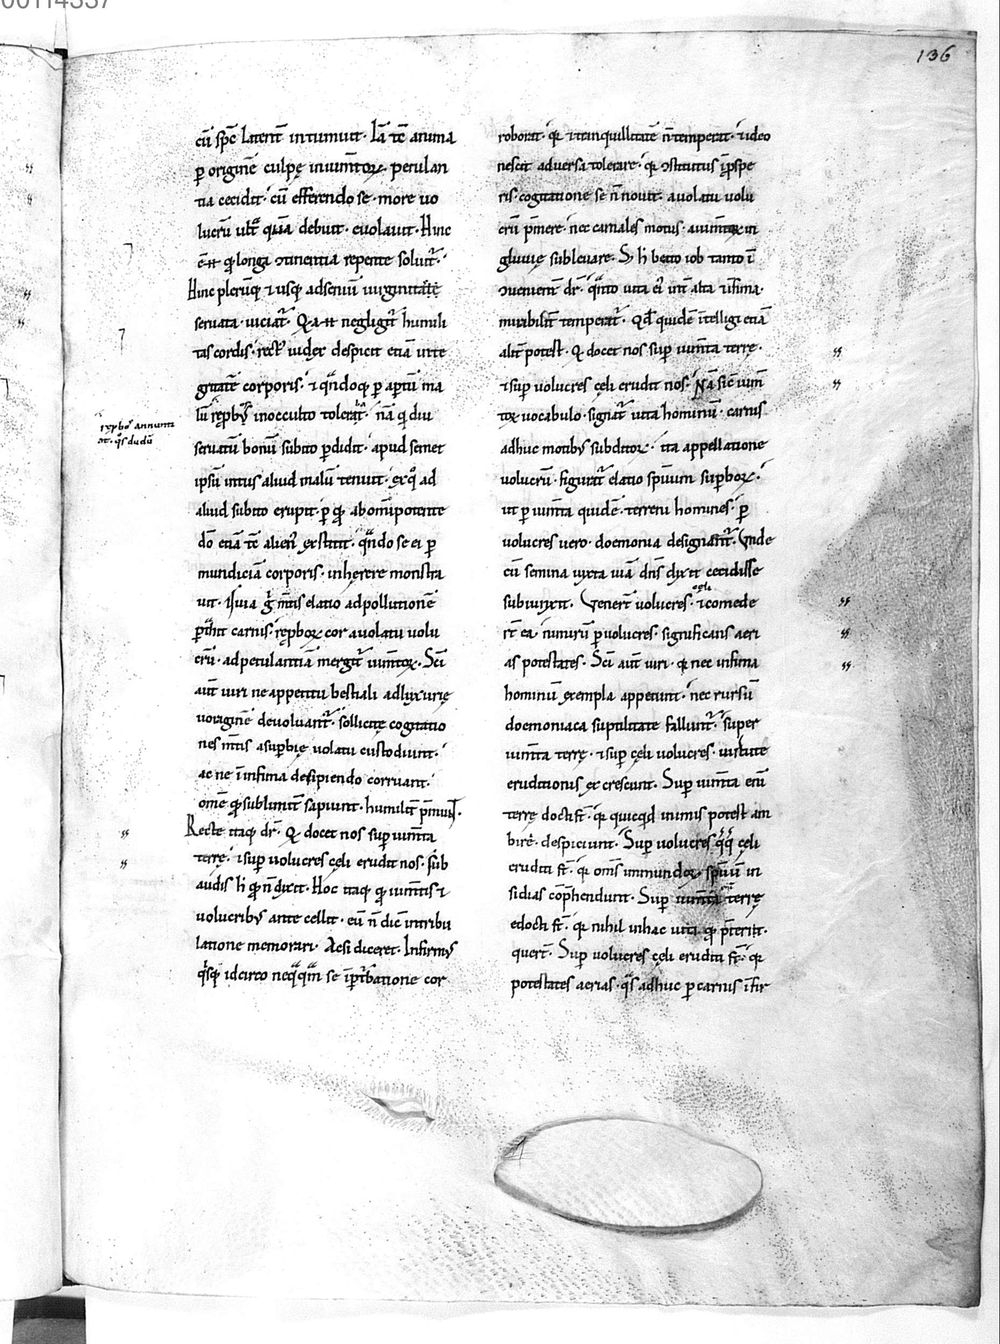 136
cū spē latent̄ intumuit· Iā tē anima
ꝑ originē culpę iniumtoꝝ petulan
tia cecidit· cū efferendo se· more uo
lucrū ultͣ quā debuit· euolauit· Hinc
ē·n· ꝙ longa ↄtinentia repente soluit̄·
Hinc plerūq; ⁊ usq; ad seniū uirginitatē
seruata· uiciat̄· Q·a·n· negligit̄ humili
tas cordis· rect͛ iudex despicit etiā inte
gritatē corporis· ⁊ qn̄doq; ꝑ aptū ma
lū rep̄bꝰ in occulto tolerat̄· nā qd diu
seruatū bonū subito ꝑdidit· apud semet
ipsū intus aliud malū tenuit· ex qͦ ad
aliud subito erupit· ꝑ ꝙ ab omīpotente
dō etiā tē alien͛ exstitit· qn̄do se ei ꝑ
mundiciā corporis· inherere monstra
uit· Quia g̊ m̄tis elatio ad pollutionē
ꝑt͛hit carnis· rep̄boꝝ cor a uolatu uolu
crū· ad petulantiā mergit̄ iumtoꝝ· Sc̄i
aut̄ uiri ne appetitu bestiali ad luxurię
uoraginē deuoluant̄· sollicite cogitatio
nes m̄tis a supbię uolatu custodiunt·
ac ne ī infima desipiendo corruant·
omē ꝙ sublimit̄ sapiunt· humilit̄ p̄munt·
Recte itaq; dr̄· Q docet nos sup iumta
terrę· ⁊ sup uolucres cęli erudit nos· sub
audis h̄ ꝙ n̄ dixit· Hoc itaq; ꝙ iumtis ⁊
uolucribꝰ antecellit· eū n̄ dic̄ in tribu
latione memorari· Ac si diceret· Infirmꝰ
qͥsq; idcirco neqͣqͣm se ī ptͥbatione cor
ręp̄bos annunti
at· qͦs dudū
roborat· qͥ ⁊ tranquillitatē n̄ temperat· ⁊ ideo
nescit aduersa tolerare· qͥ ↄstitutus ī ꝓspe
ris· cogitatione se n̄ nouit· a uolatu uolu
crū p̄mere· nec carnales motus· a iumtoꝝ in
gluuie subleuare· S; h̄ beato iob tanto ī
ↄuenient̄ dr̄· qͣnto uita ei͛ int̄ alta ⁊ īfima·
mirabilit̄ temperat̄· Qđ quidē ītelligi etiā
alit̄ potest· Q docet nos sup iumta terrę·
⁊ sup uolucres cęli erudit nos· Nā sic̄ ium
toꝝ uocabulo· signat̄ uita hominū· carnis
adhuc motibꝰ subditoꝝ· ita appellatione
uolucrū· figurat̄ elatio spūum supboꝝ·
ut ꝑ iumta quidē· terreni homines· ꝑ
uolucres uero· doemonia designant̄· Unde
cū semina iuxta uiā dn̄s dixit cecidisse
subiunxit· Venert̄ uolucres· cęli ⁊ comede
rt̄ ea· nimirū ꝑ uolucres· significans aeri
as potestates· Sc̄i aut̄ uiri· qͥ nec infima
hominū exempla appetunt· nec rursū
doemoniaca suptilitate fallunt̄· super
iumta terrę· ⁊ sup cęli uolucres· uirtute
eruditionis excrescunt· Sup iumta enī
terrę docti st̄· qͥ quicqd in imis potest am
biri· despiciunt· Sup uolucres qͦq; cęli
eruditi st̄· qͥ om̄s immundoꝝ spūū in
sidias cōp̄hendunt· Sup iumta terrę
edocti st̄· qͥ nihil in hac uita ꝙ p̄terit·
quert̄· Sup uolucres cęli eruditi st̄· qͥ
potestates aerias· qͣs adhuc ꝑ carnis īfir